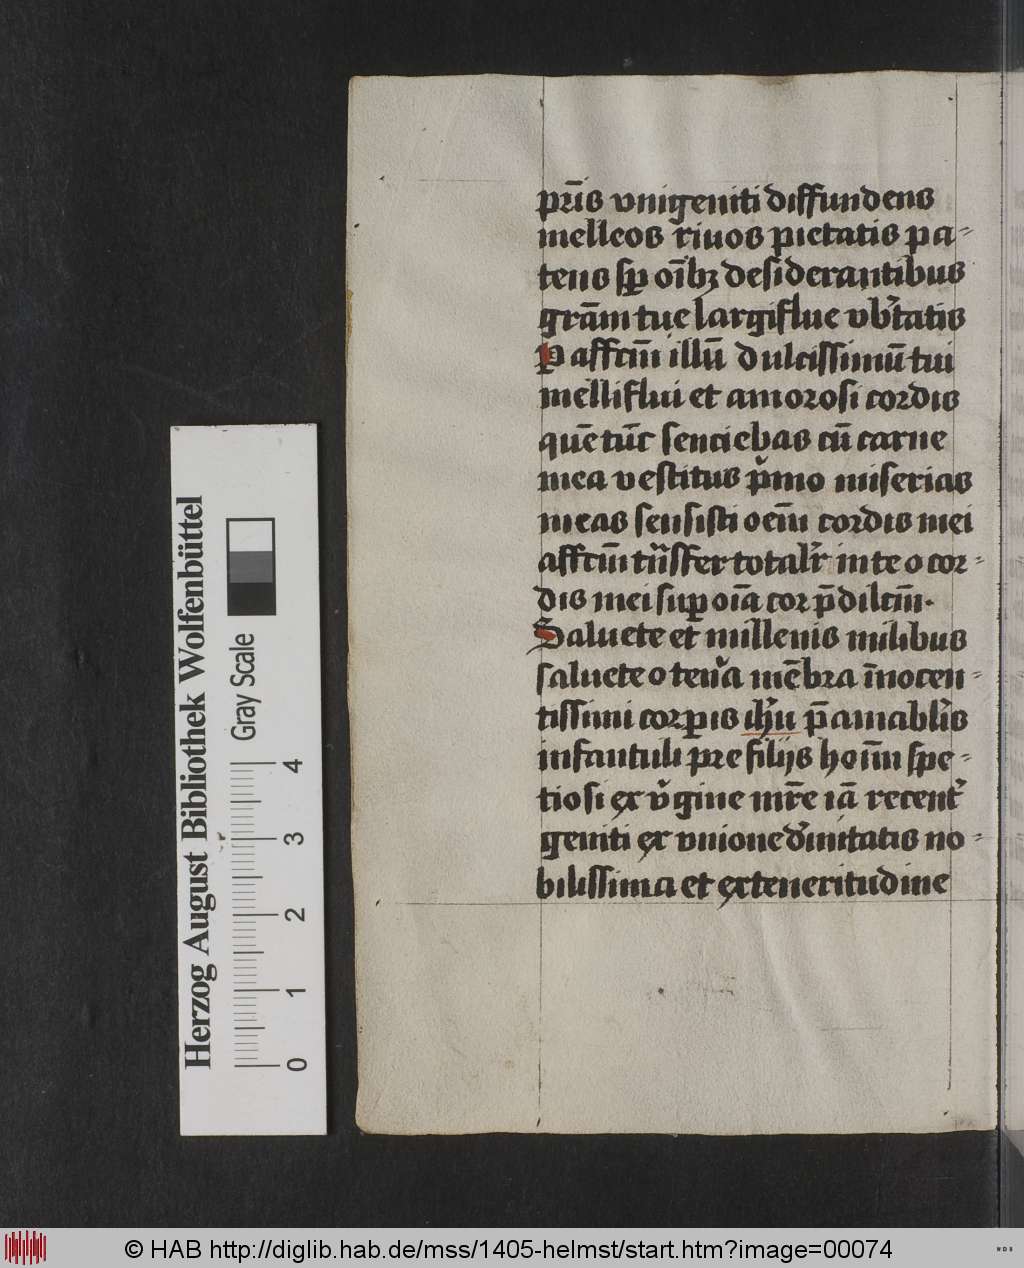 pr̄is vnigeniti diffundens
melleos riuos pietatis pa-
tens sp̄ oīb3 desiderantibus
grām tue largiflue vb'tatis
P affcm̄ illū dulcissimū tui
melliflui et amorosi cordis
quē tūc senciebas cū carne
mea vestitus p'mo miserias
meas sensisti oēm cordis mei
affcm̄ tn̄sfer total'r in te o cor-
dis mei suꝑ oīa cor p̄dilcm̄.
Saluete et millenis milibus
saluete o ten'a mēbra īnocen-
tissimi corꝑis ih̄u p̄amabl'is
infantuli pre filijs hoīm spe-
tiosi ex v'gine mr̄e iā recent'
geniti ex vnione d'initatis no-
bilissima et ex teneritudine
Herzog August Bibliothek Wolfenbüttel
Gray Scale
0 1 2 3 4
© HAB http://diglib.hab.de/mss/1405-helmst/start.htm?image=00074